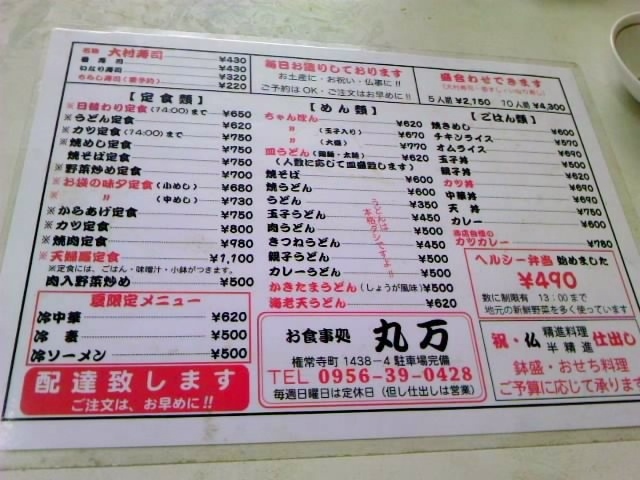 名物 大村寿司 ¥430
巻寿司 ¥430
いなり寿司 ¥320
ちらし寿司(要予約) ¥220
毎日お造りしております
お土産に・お祝い・仏事に!!
ご予約はOK・ご注文はお早めに!!
盛合わせできます
5人前 ¥2,150 10人前 ¥4,300
【定食類】
※日替わり定食(14:00)まで ¥650
※うどん定食 ¥620
※カツ定食(14:00)まで ¥750
※焼めし定食 ¥750
焼そば定食 ¥750
※野菜炒め定食 ¥700
※お袋の味夕定食(小めし) ¥680
※ 〃 (中めし) ¥730
※からあげ定食 ¥750
※カツ定食 ¥800
※焼肉定食 ¥980
※天婦羅定食 ¥1,100
※定食には、ごはん・味噌汁・小鉢がつきます。
肉入野菜炒め ¥500
夏限定メニュー
冷中華 ¥620
冷麦 ¥500
冷ソーメン ¥500
配達致します
ご注文は、お早めに!!
【めん類】
ちゃんぽん ¥620
〃 (玉子入り) ¥670
〃 (大盛) ¥770
皿うどん(細麺・太麺) ¥620
(人数に応じて皿盛致します)
焼そば ¥600
焼うどん ¥600
うどん ¥350
玉子うどん ¥450
肉うどん ¥500
きつねうどん ¥450
親子うどん ¥500
カレーうどん ¥500
かきたまうどん(しょうが風味) ¥500
海老天うどん ¥620
うどんは
本格ダシですよ!!
お食事処 丸万
権常寺町1438-4 駐車場完備
TEL 0956-39-0428
毎週日曜日は定休日(但し仕出しは営業)
【ごはん類】
焼きめし ¥600
チキンライス ¥570
オムライス ¥690
玉子丼 ¥500
親子丼 ¥600
カツ丼 ¥620
中華丼 ¥690
天丼 ¥690
カレー ¥500
当店自慢の
カツカレー ¥780
ヘルシー弁当 始めました
¥490
数に制限有 13:00まで
地元の新鮮野菜を多く使っています
祝・仏 精進料理 半精進 仕出し
鉢盛・おせち料理
ご予算に応じて承ります